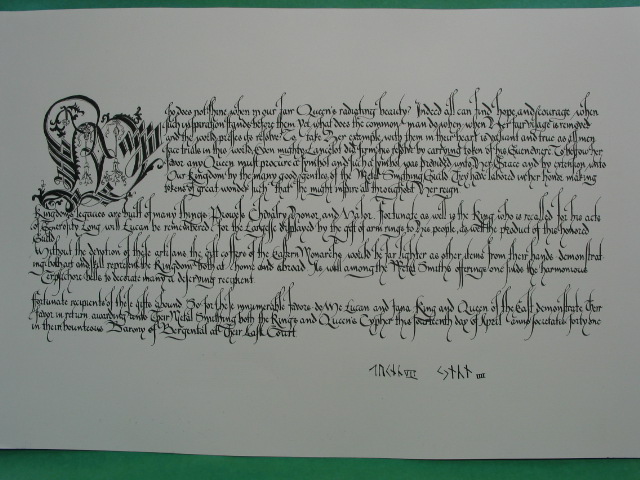 Who does not shine when in our fair Queen's radiating beauty? Indeed all can find hope, and courage when
such inspiration stands before them Yet what does the common man do when Her fair visage is removed
and the world presses its resolve To take Her example with them in their heart is valiant and true as all men
face trials in this world Even mighty Lancelot did form his resolve by carrying token of his Guenevere To bestow her
favor any Queen must procure a symbol and such a symbol was branded unto Her Grace and by extension unto
Our Kingdom by the many good gentles of the Metal Smithing Guild They have labored in her honor making
tokens of great wonder such that the might inspire all throughout Her reign
Kingdom's legacies are built of many things Prowess Chivalry Honor and Valor. Fortunate as well is the King who is recalled for his acts
of Generosity Long will Lucan be remembered for the Largesse displayed by the gift of arm rings to His people, as well the product of this honored
Guild
Without the devotion of these artisans the gift coffers of the Eastern Monarchs would be far lighter as other items from their hands demonstrat-
ing both art and skill represent the Kingdom both at home and abroad As well among the Metal Smiths offerings one finds the harmonious
Terpsichore bells to decorate many a deserving recipient
Fortunate recipients of these gifts abound So for these innumerable favors do We Lucan and Jana King and Queen of the East demonstrate Their
favor in return awarding unto Their Metal Smithing both the King's and Queen's Cypher this fourteenth day of April anno societatis forty one
in their bounteous Barony of Bergental at Their Last Court